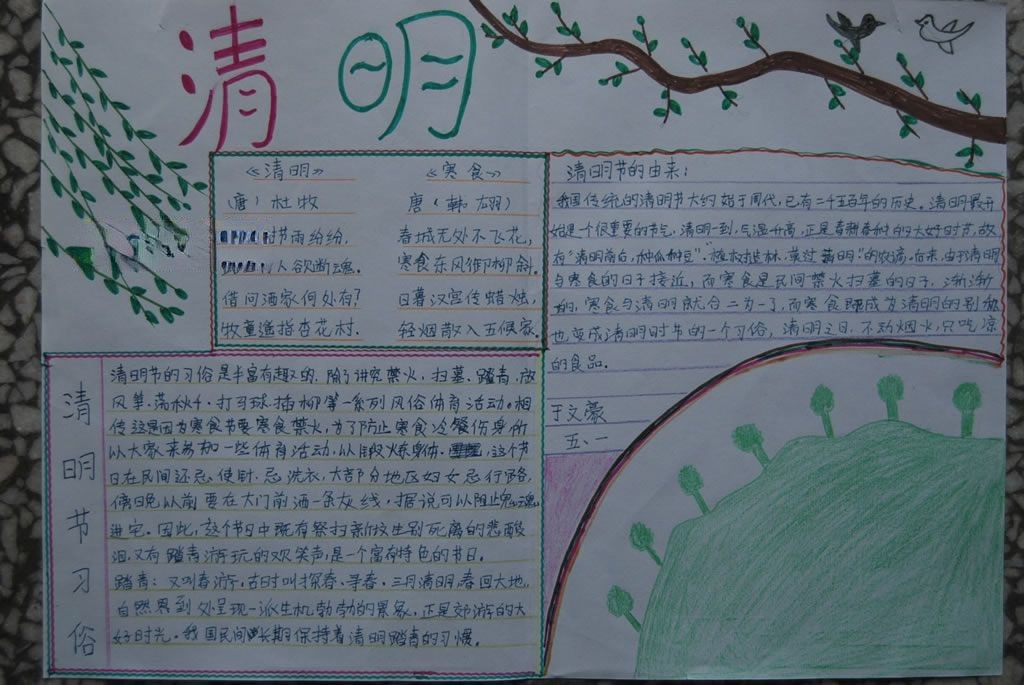 清明
《清明》
唐）杜牧
时雨纷纷，
人欲断魂。
借问酒家何处有？
牧童遥指杏花村．
《寒食》
唐（韩翃）
春城无处不飞花，
寒食东风御柳斜．
日暮汉宫传蜡烛，
轻烟散入五侯家．
清明节的由来：
我国传统的清明节大约始于周代，已有二千五百年的历史。清明最开
始是一个很重要的节气，清明一到，气温升高，正是春耕春种的大好时节，故
有“清明前后，种瓜种豆”．“植树造林，莫过清明”的农谚，后来，由于清明
与寒食的日子接近，而寒食是民间禁火扫墓的日子．渐渐
的，寒食与清明就合二为一了，而寒食既成为清明的别称
也变成清明时节的一个习俗，清明之日，不动烟火，只吃凉
的食品．
于文豪
五、一
清明节习俗
清明节的习俗是丰富有趣的，除了讲究禁火，扫墓、踏青，放
风筝．荡秋千．打马球．插柳等一系列风俗体育活动。相
传这是因为寒食节要寒食禁火，为了防止寒食冷餐伤身，所
以大家来参加一些体育活动，以锻炼身体．这个节
日在民间还忌使针．忌洗衣，大部分地区妇女忌行路．
傍晚以前要在大门前洒一条灰线，据说可以阻止鬼魂
进宅。因此，这个节日中既有祭扫新坟生别死离的悲酸
泪，又有踏青游玩的欢笑声，是一个富有特色的节日。
踏青：又叫春游，古时叫探春、寻春．三月清明，春回大地，
自然界到处呈现一派生机勃勃的景象，正是郊游的大
好时光。我国民间长期保持着清明踏青的习惯。